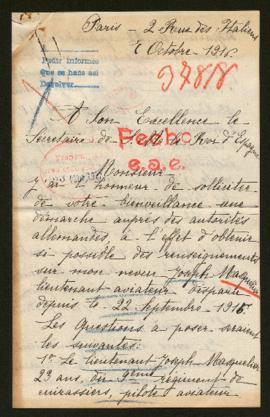 Paris - 2 Rue des Italiens
Octobre 1915.
Pedir informes
que se hace así
A Son Excellence le
Secrétaire de S. M. le Roi d'Espagne
Fecho
e.a.e.
Monsieur
J'ai l'honneur de solliciter
de votre bienveillance une
démarche auprès des autorités
allemandes, à l'effet d'obtenir
si possible des renseignements
sur mon neveu Joseph Masquelier
lieutenant aviateur disparu
depuis le 22 Septembre 1915.
Les Questions à poser seraient
les suivantes:
1º Le lieutenant Joseph Masquelier
23 ans, du 9eme régiment de
cuirassiers, pilote aviateur